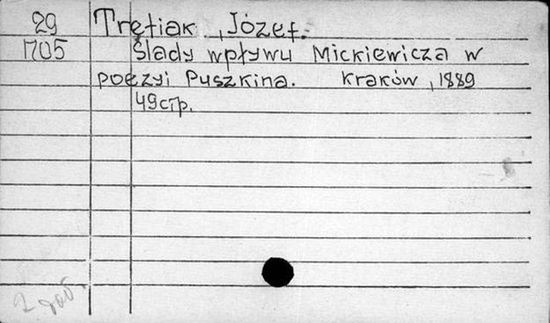 29 Trętiak, Józef.
1705 Ślady wpływu Mickiewicza w
poęzyi Puszkina. Kraków, 1889
49 стр.
2